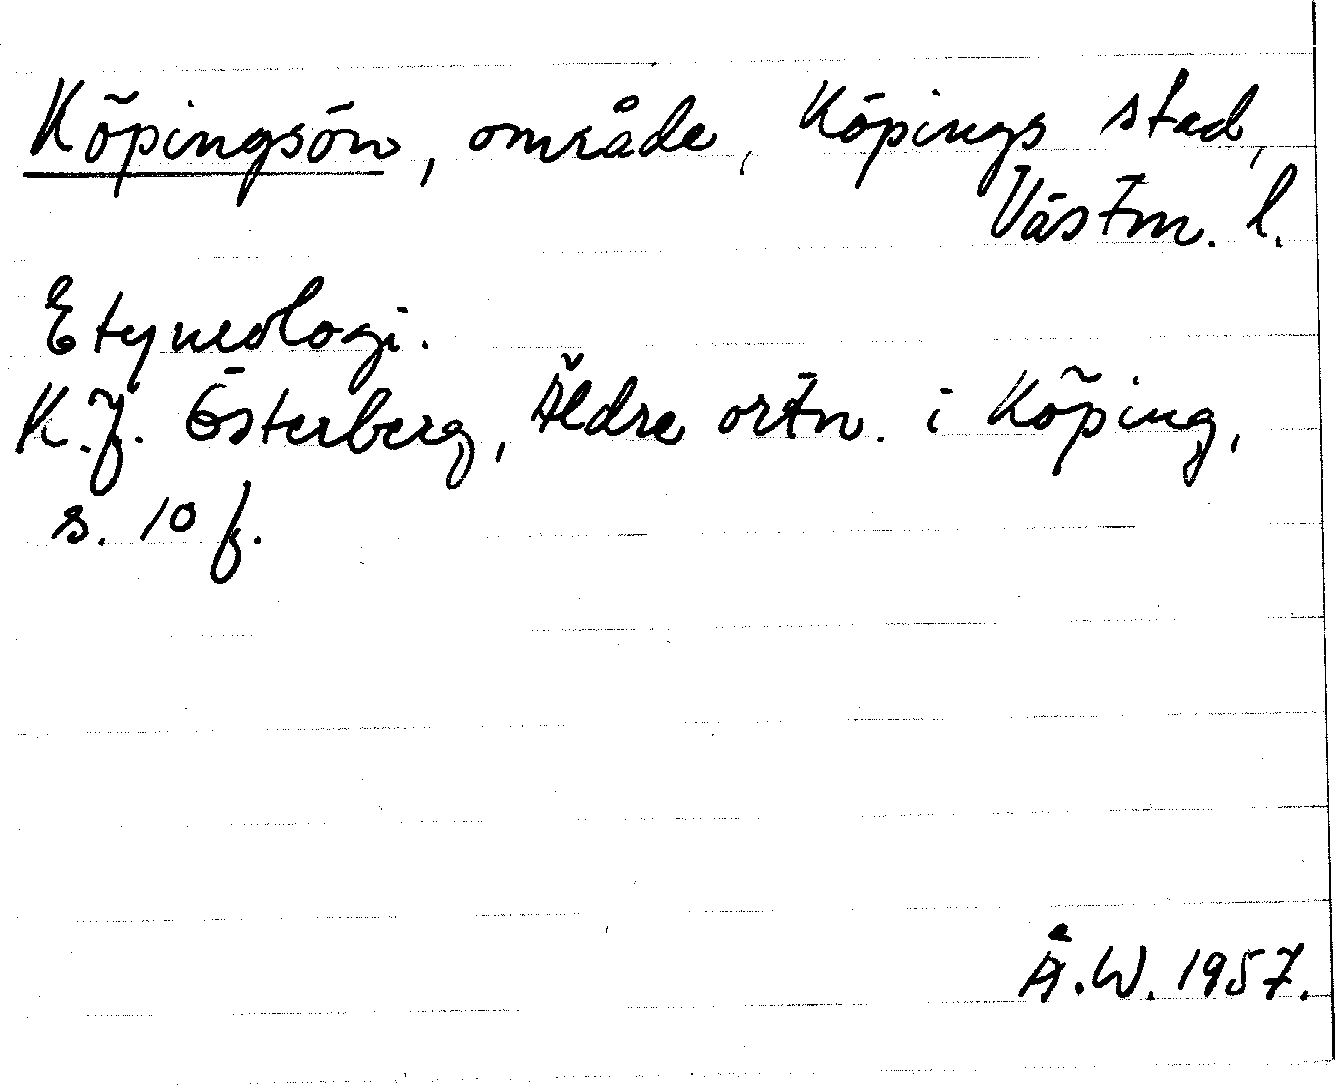 Köpingsön, område, Köpings stad,
Västm. l.
Etymologi.
K.J. Österberg, Äldre ortn. i Köping,
s. 10 f.
Å.W. 1957.